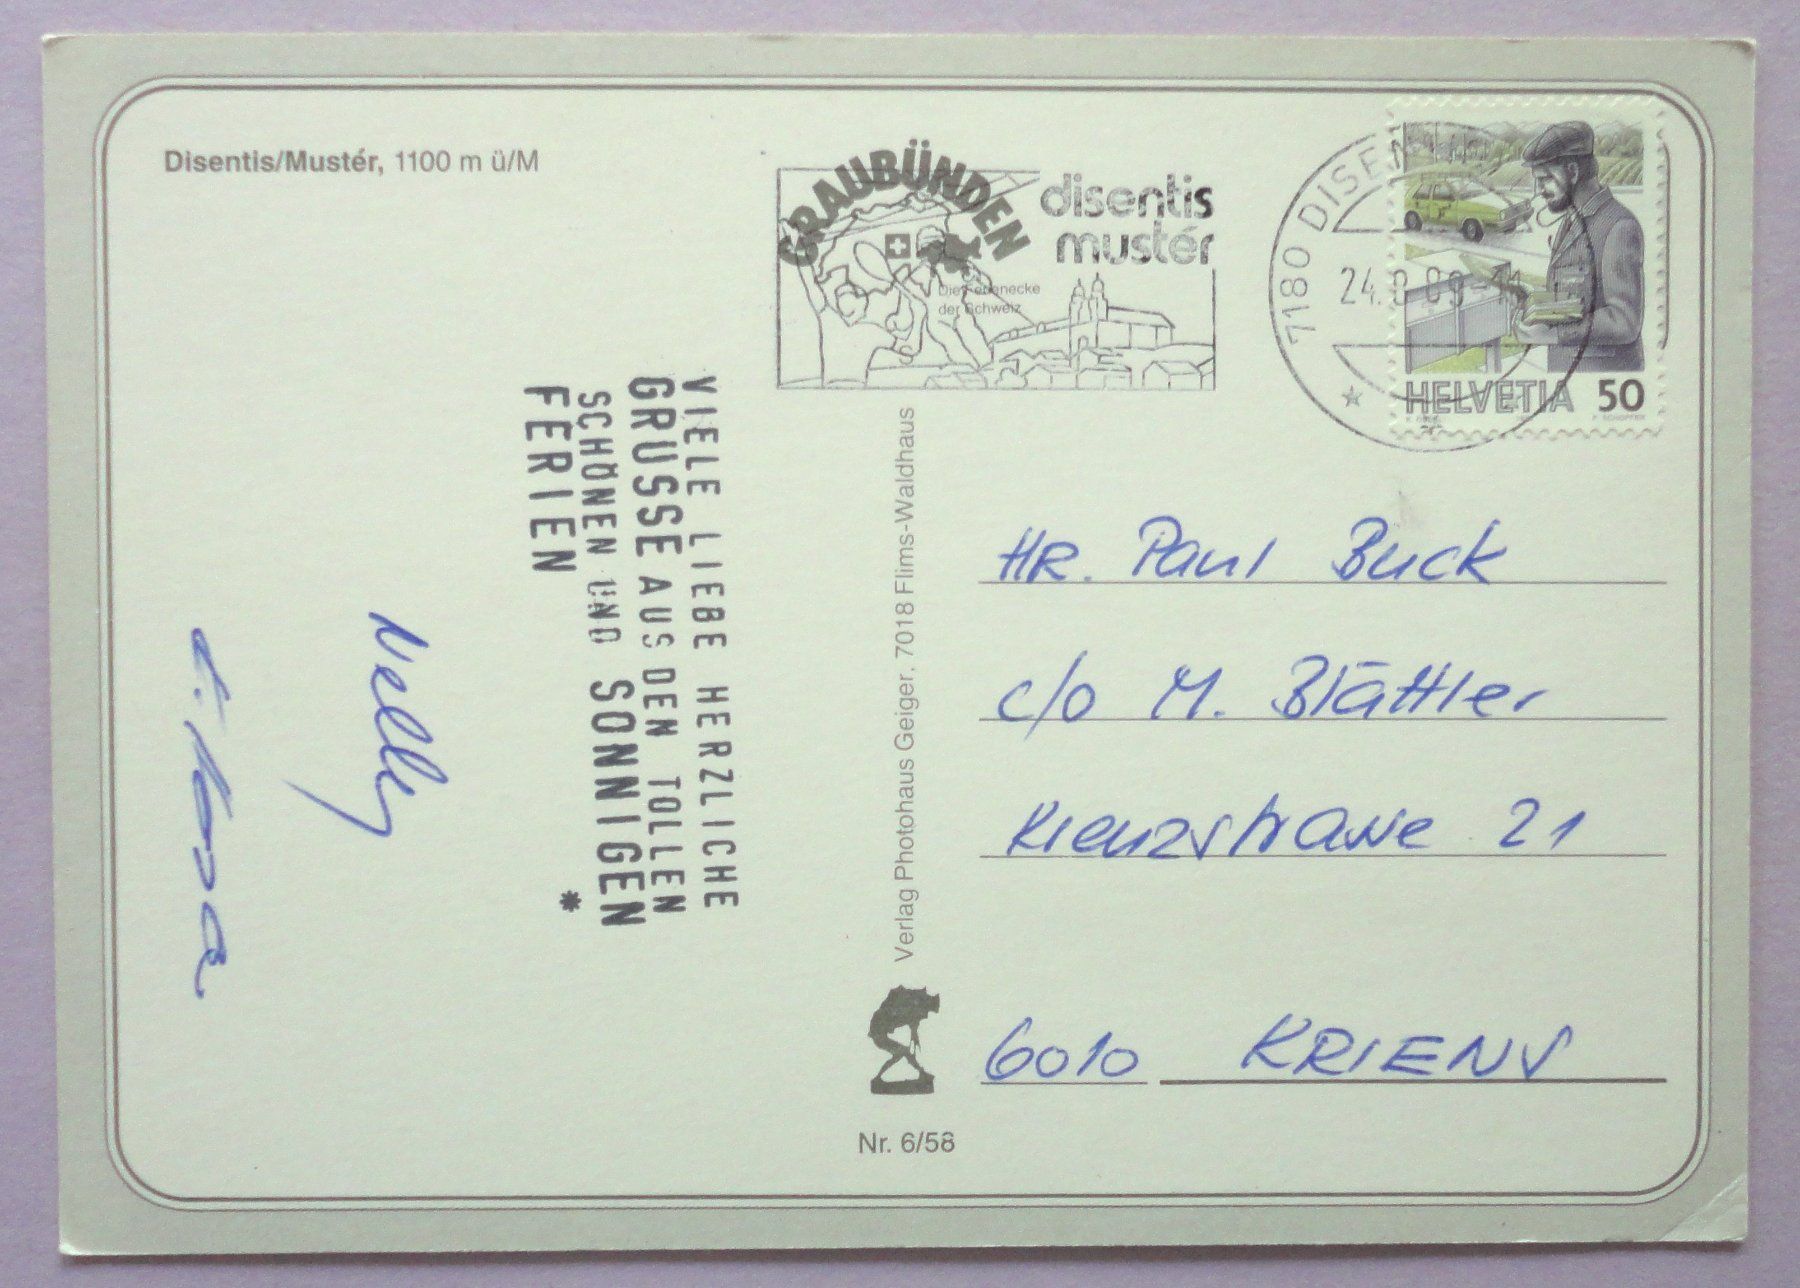 Disentis/Mustér, 1100 m ü/M
GRAUBÜNDEN
Die Ferienecke
der Schweiz
disentis
mustér
7180 DISEN
24. 89-11
HELVETIA 50
VIELE LIEBE HERZLICHE
GRÜSSE AUS DEN TOLLEN
SCHÖNEN UND SONNIGEN
FERIEN *
Nelly
Verlag Photohaus Geiger. 7018 Flims-Waldhaus
Nr. 6/58
HR. Paul Buck
c/o M. Blättler
Krenzstrasse 21
6010 KRIENS